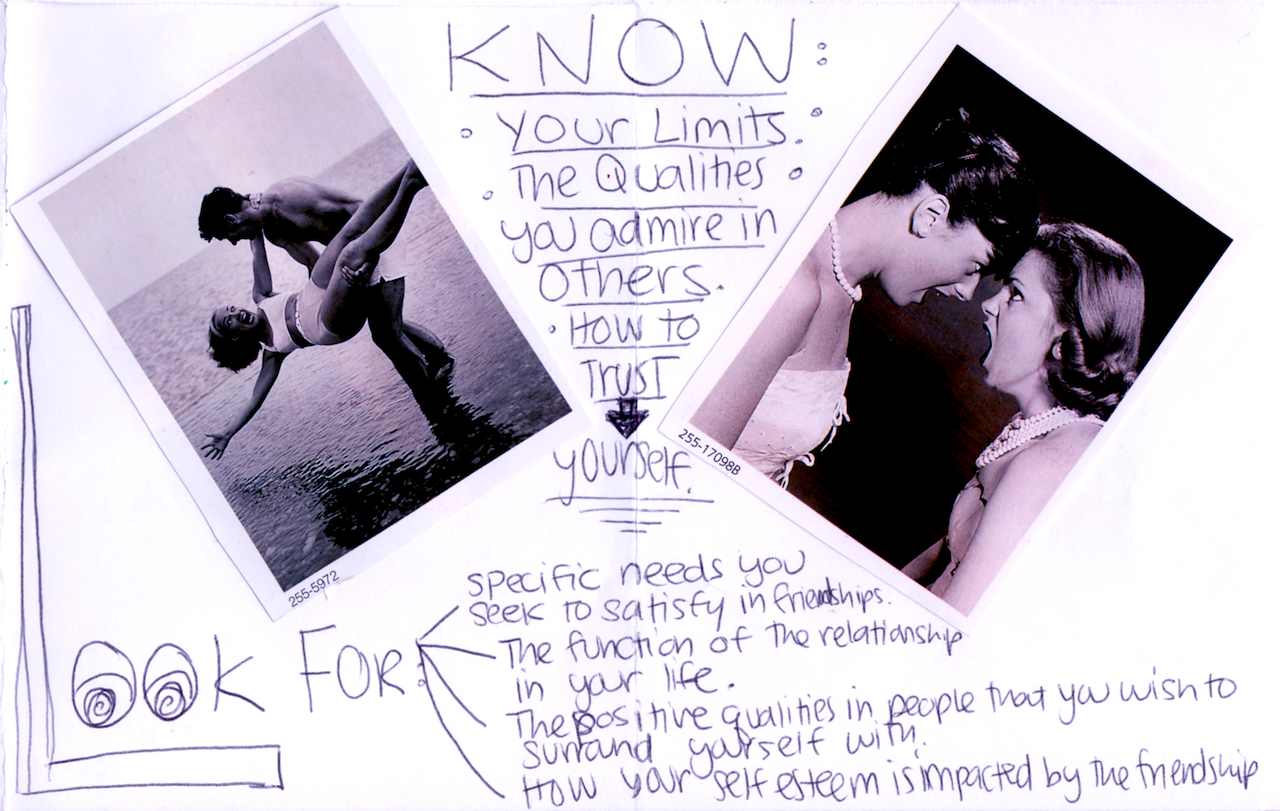 KNOW:
Your Limits.
The Qualities
you admire in
others.
How to
Trust
yourself.
255-5972
255-17098B
Look For:
specific needs you
seek to satisfy in friendships.
The function of the relationship
in your life.
The positive qualities in people that you wish to
surround yourself with.
How your self esteem is impacted by the friendship